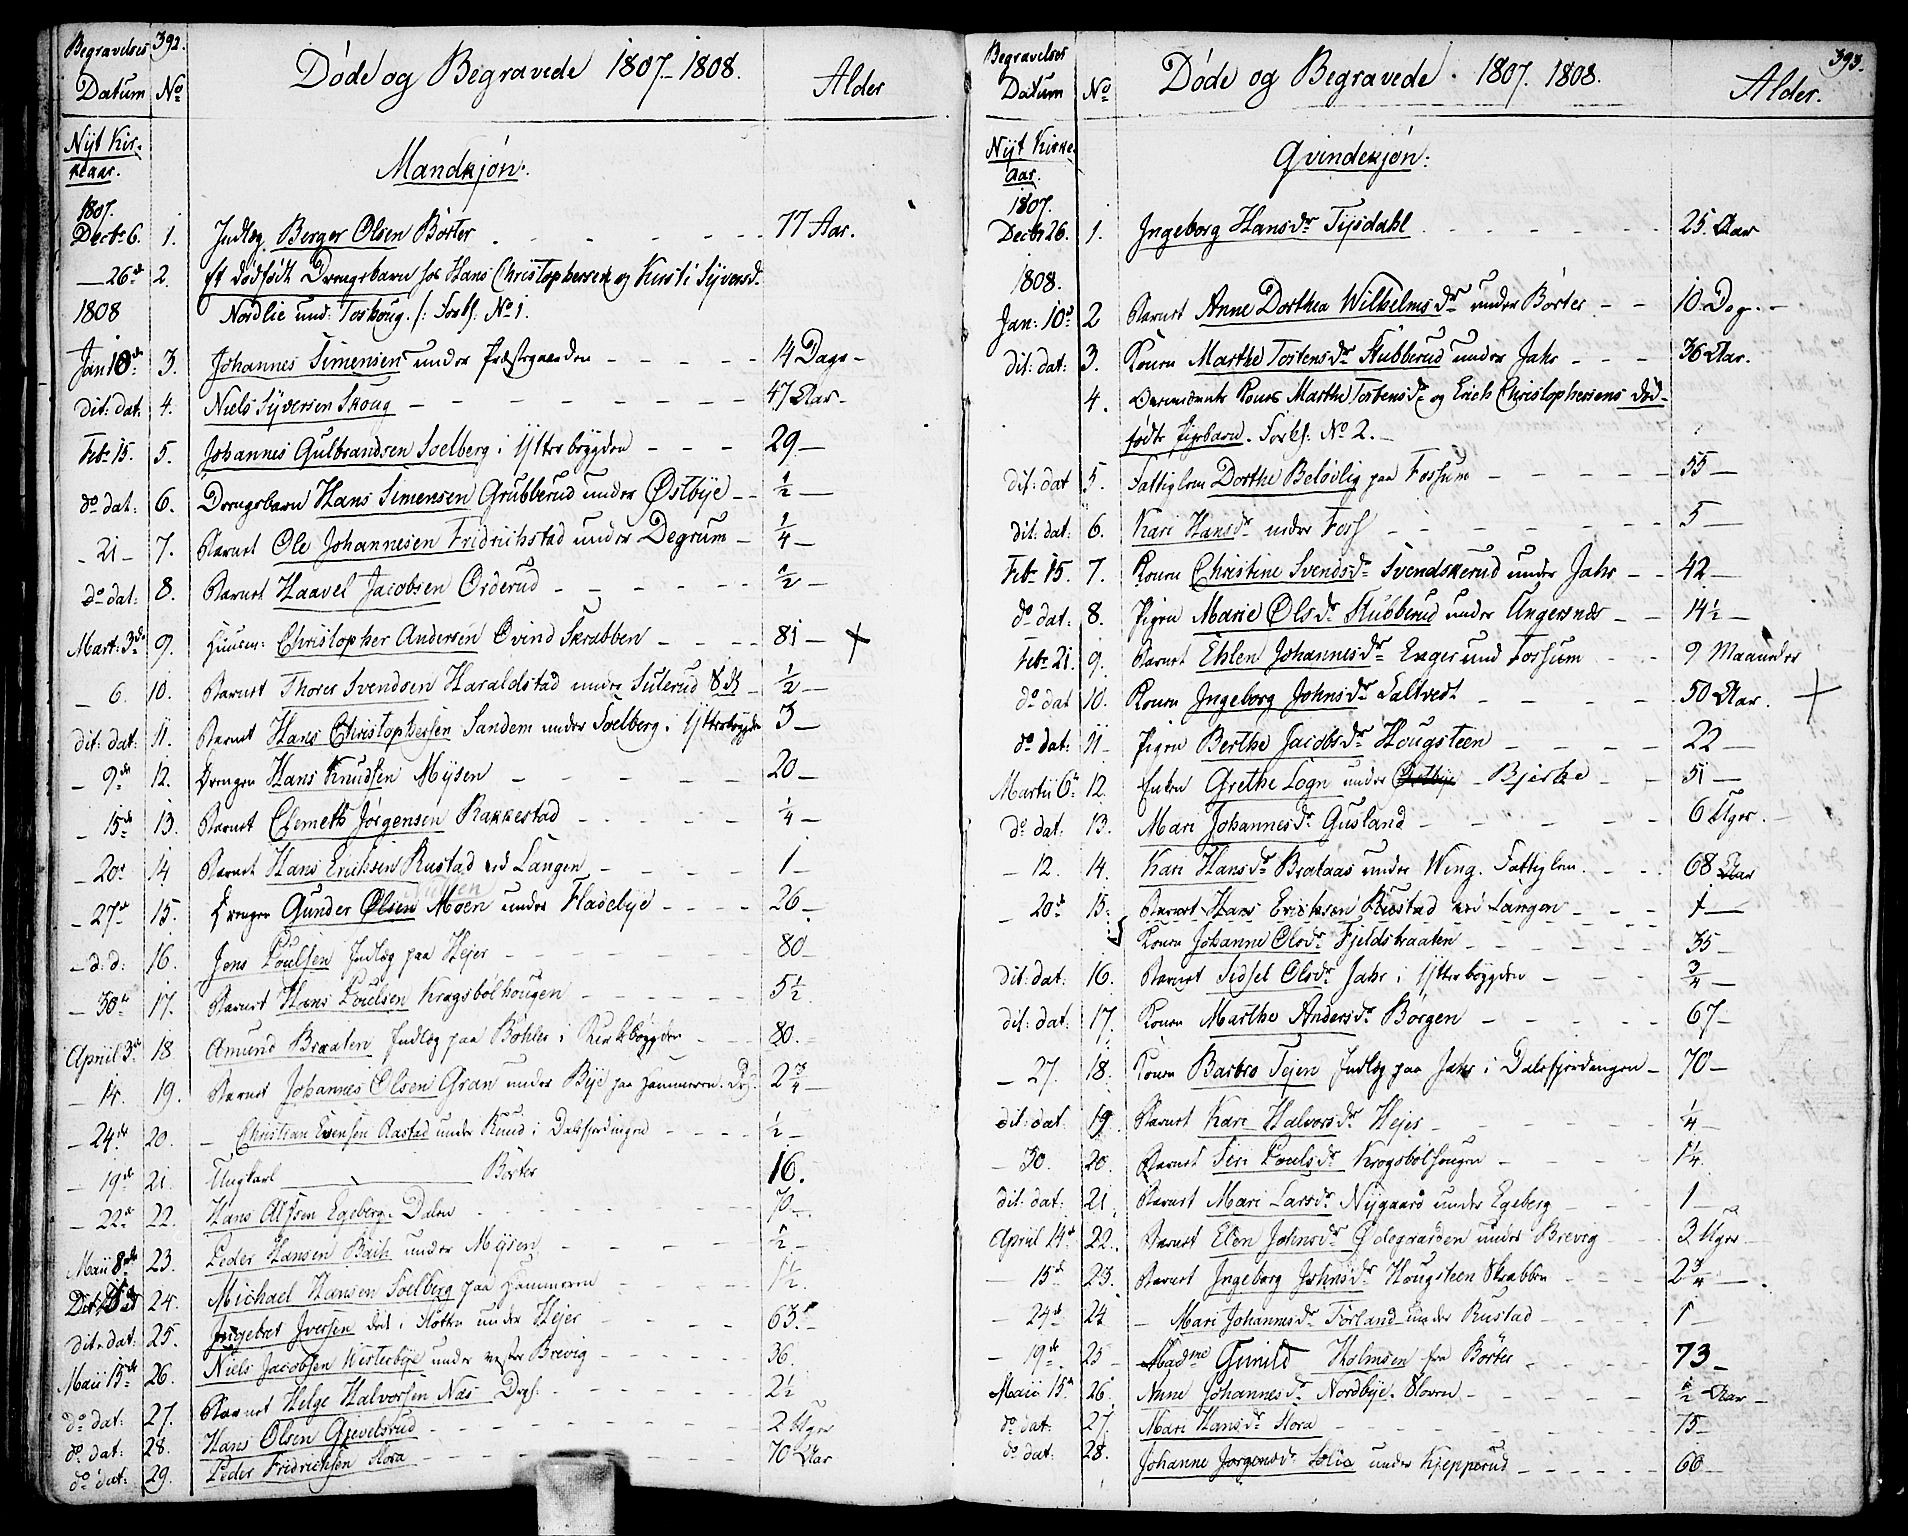 Begravelses 392.
Datum No
Døde og Begravede 1807-1808.
Alder
Nyt Kir-
keaar.
Mandkjøn:
1807.
Decbr 6. 1. Indlæg Berger Olsen Børter 77 Aar.
— 26de 2. Et dødfødt Drengebarn hos Hans Christophersen og Kirsti Syversdr
1808 Nordlie und: Toskoug. /: Forts: No 1.
Jan: 10de 3. Johannes Simensen under Præstegaarden 14 Dage
dit: dat: 4. Niels Syversen Skoug 47 Aar
Febr 15. 5. Johannes Gulbrandsen Soelberg i Ytterbygden 29 —
do dat: 6. Drengebarn Hans Simensen Grubberud under Østbye ½ —
- 21 - 7. Barnet Ole Johannesen Fridrichstad under Degrum ¼ —
do dat: 8. Barnet Haavel Jacobsen Orderud ½ —
Mart: 3de 9. Huusm: Christopher Andersen Øvind Skrabben 81 —
- 6 10. Barnet Thorer Svendsen Haraldstad under Sulerud ½ —
dit: dat: 11. Barnet Hans Christophersen Sandem under Soelberg i Ytterbygden 3 —
- 9de 12. Drengen Hans Knudsen Mysen 20 —
- 15de 13. Barnet Clemeth Jørgensen Rakkestad ¼ —
- 20de 14 Barnet Hans Erichsen Rustad ved Langen 1 —
- 27de 15. Drengen Gunder Olsen Moen under Fladebye 26 -
- d: d: 16. Jens Poulsen Indlæg paa Hejer 80 —
- 30te 17. Barnet Hans Poulsen Krogsbølhougen 5½
April 3de 18 Amund Braaten Indlæg paa Bøhler i Kirkebygden 80.
- 14. 19. Barnet Johannes Olsen Gran under Bye paa Hammeren 2¾ —
- 24de 20. — Christian Evensen Rastad under Ruud i Dalefierdingen ½ —
- 19de 21. Ungkarl ——— Børter 16.
- 22de 22. Hans Alfsen Egeberg. Dalen 70 —
Maii 8de 23. Peder Hansen Bach under Mysen ½ —
Dit: Dat 24. Michael Hansen Soelberg paa Hammeren 1½
dit. dat: 25. Ingebret Iversen død i Støtten under Hejer 63.
Maii 15de 26. Niels Jacobsen Westerbye under vestre Brevig 36.
do dat: 27. Barnet Helge Halvorsen Nas 2½
do dat: 28. Hans Olsen Gjevelsrud 2 Uger
do dat: 29. Peder Fridrichsen Mora 70 Aar
Begravelses
Datum No
Døde og Begravede. 1807. 1808.
393.
Alder.
Nyt Kirke
Aar.
Qvindekjøn:
1807.
Decbr 26. 1. Ingeborg Hansdr Tysdahl 25. Aar
1808.
Jan: 10de 2 Barnet Anne Dorthea Wilhelmsdr under Børter 10. Dage
dit: dat: 3. Konen Marthe Tostensdr Stubberud under Jahr 36 Aar.
4. Ovenmeldte Kones Marthe Tostensdr og Erich Christophersens død-
fødte Pigebarn. Forts: No 2. —
dit: dat 5. Fattiglem Dorthe Beløvlig paa Fossum 55 —
dit: dat: 6. Kari Hansdr under Foss 5 —
Febr 15. 7. Konen Christine Svendsdr Svendskerud under Jahr 42 —
do dat: 8. Pigen Marie Olsdr Stubberud under Ungersnæs 14½ —
Febr 21. 9. Barnet Ehlen Johannesdr Enger und Fossum 9 Maaneder
do dat 10. Konen Ingeborg Johnsdr Saltvedt 50 Aar.
do dat: 11 - Pigen Berthe Jacobsdr Hougsteen 22 —
Martii 6te 12. Enken Grethe Logn under Bjerke 51 —
do dat: 13. Mari Johannesdr Gusland 6 Uger.
- 12. 14. Kari Hansdr Brataas under Wing. Fattiglem. 68 Aar
- 20de 15. Barnet Hans Erichsen Rustad ved Langen 1 —
Konen Johanne Olsdr Fjeldbraaten 35 —
dit: dat: 16. Barnet Sidsel Olsdr Jahr i Ytterbygden ¾ —
dit: dat: 17. Konen Marthe Andersdr Børgen 67 —
- 27. 18. Konen Barbro Tejen Indlæg paa Jahr i Dalefjerdingen 70 —
dit: dat: 19. Barnet Kari Halvorsdr Hejer ¼ —
- 30. 20. Barnet Siri Poulsdr Krogsbølhougen 1¼
dit: dat: 21. Barnet Mari Larsdr Nygaard under Egeberg 1 —
April 14de 22. Barnet Elen Johnsdr Ødegaarden under Brevig 3 Uger
— 15de 23. Barnet Ingeborg Johnsdr Hougsteen Skrabben 2¾ —
— 24de 24 — Mari Johannesdr Torland under Rustad 1 —
— 19de 25 — Madme Gunild Holmsen fra Børter 73 —
Maii 15de 26. Anne Johannesdr Nordbye. Sloren ½ Aar
do dat: 27. Mari Hansdr Mora 75 —
do dat: 28. Johanne Jørgensdr Solie under Kjepperud 66 —